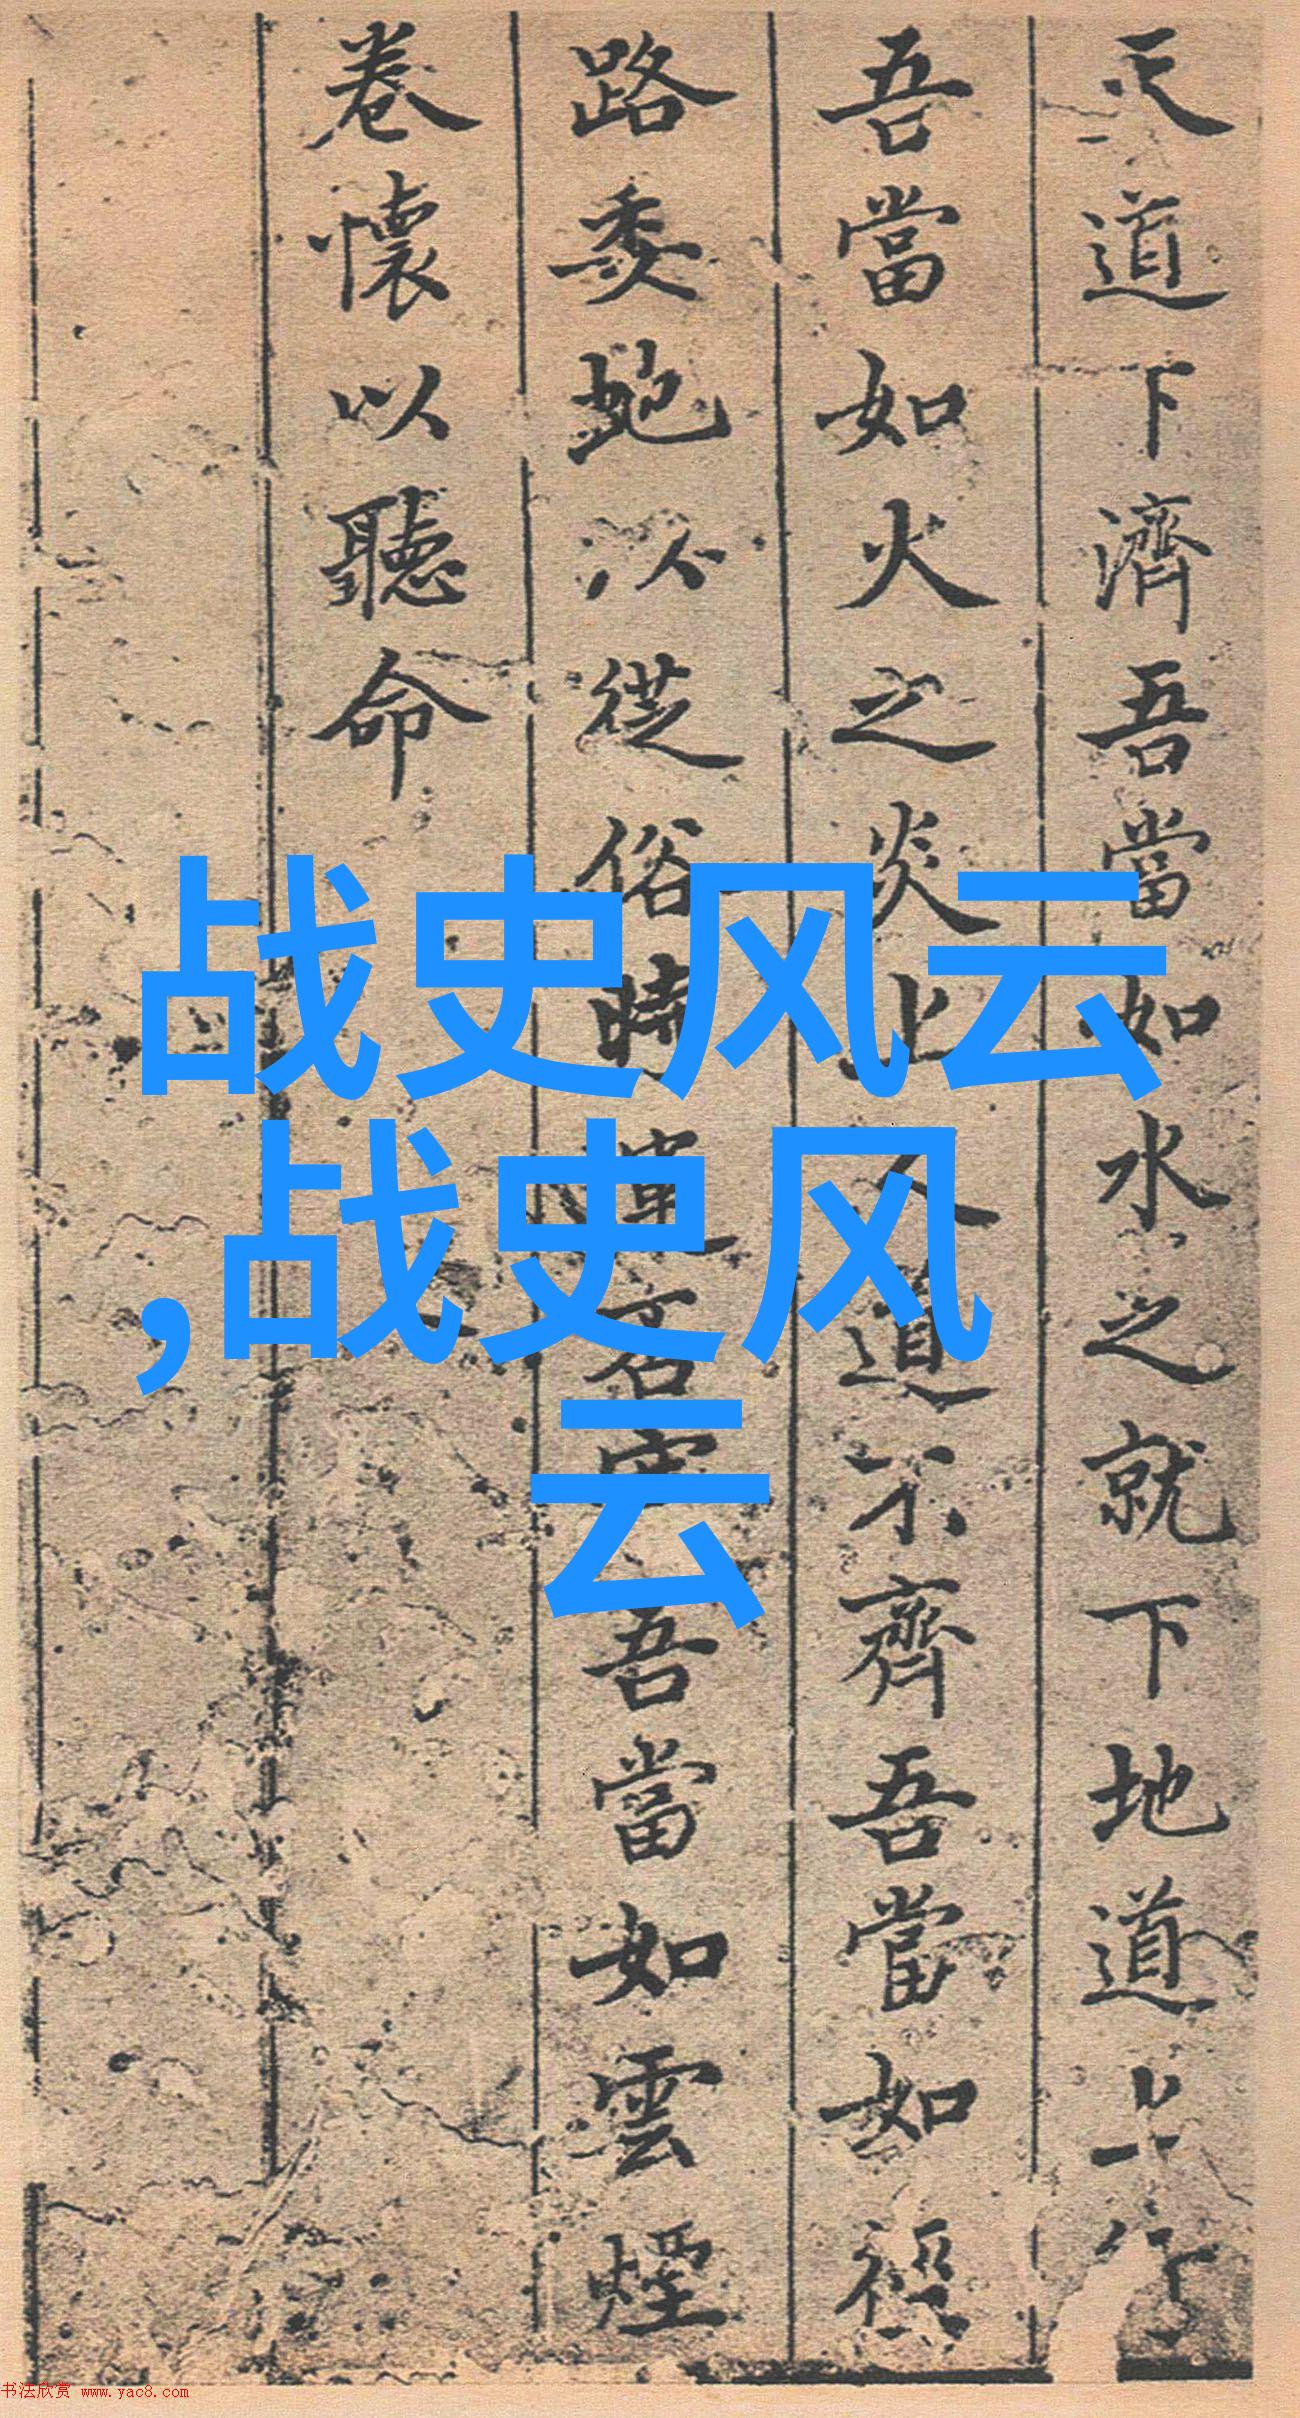 天道下濟吾當如水之就下地道上行
吾當如火之炎上人道不齊吾當如裎
路委蛇以從俗時違名吾當如雲煙
卷懷以聽命
战史风云
,战史风
云
书法欣赏 www.yac8.com